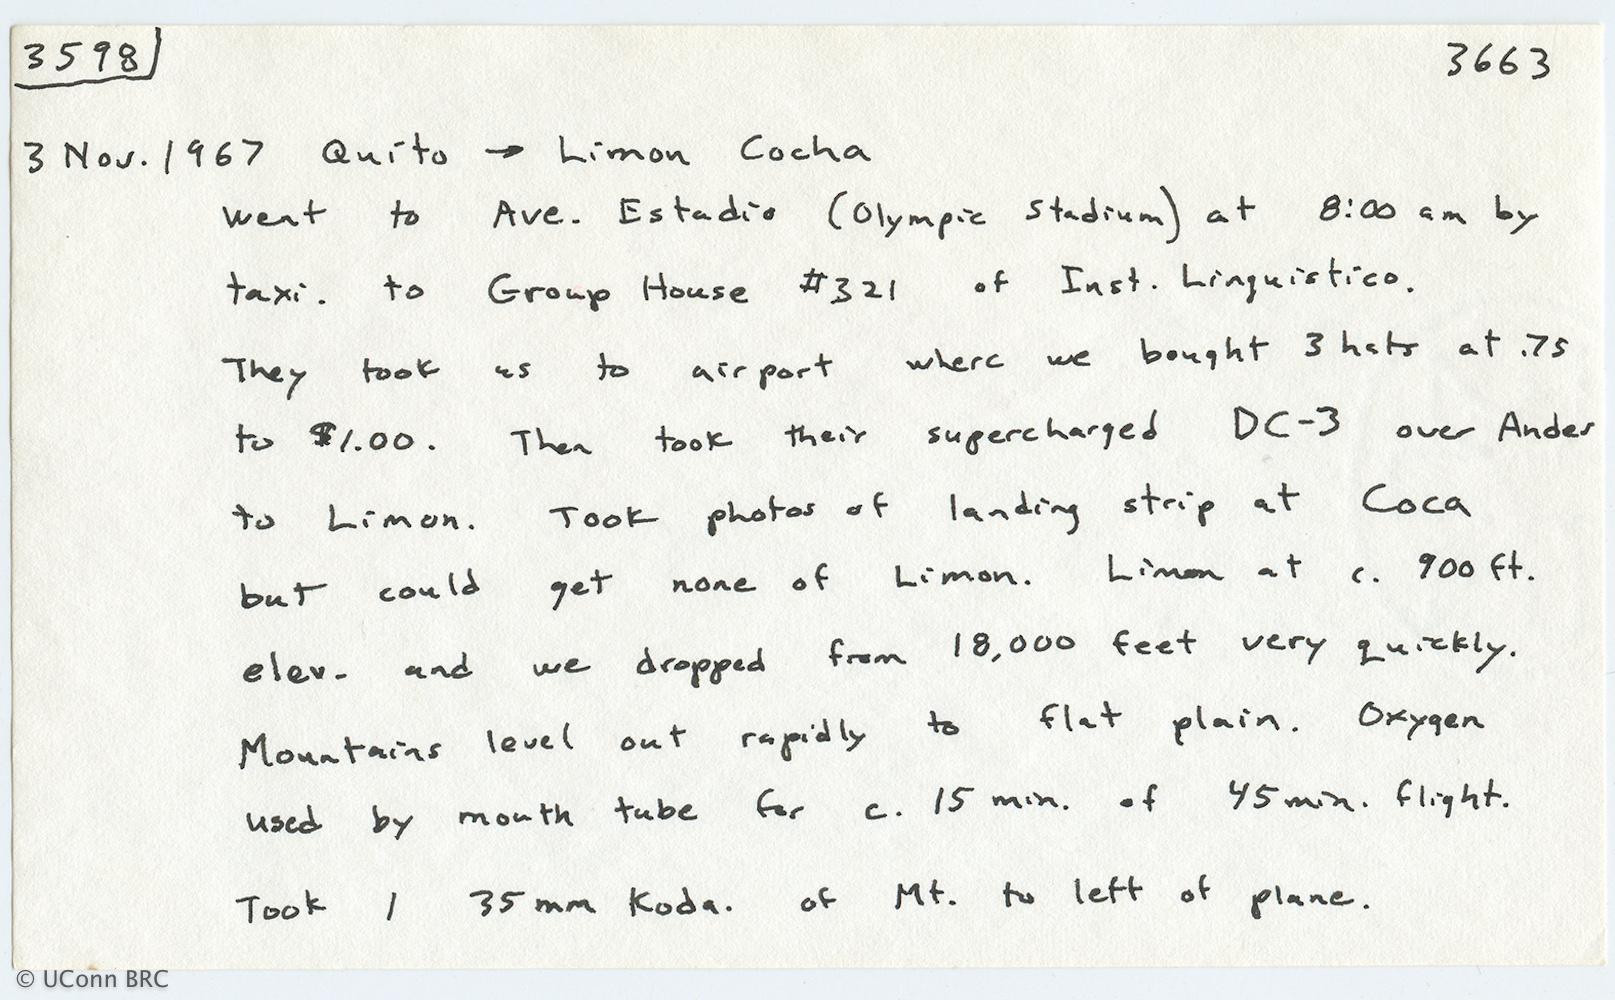 3598 3663
3 Nov. 1967 Quito → Limon Cocha
went to Ave. Estadio (Olympic Stadium) at 8:00 am by
taxi. to Group House #321 of Inst. Linguistico.
They took us to airport where we bought 3 hats at .75
to $1.00. Then took their supercharged DC-3 over Andes
to Limon. Took photos of landing strip at Coca
but could get none of Limon. Limon at c. 900 ft.
elev. and we dropped from 18,000 feet very quickly.
Mountains level out rapidly to flat plain. Oxygen
used by mouth tube for c. 15 min. of 45 min. flight.
Took 1 35mm Koda. of Mt. to left of plane.
© UConn BRC